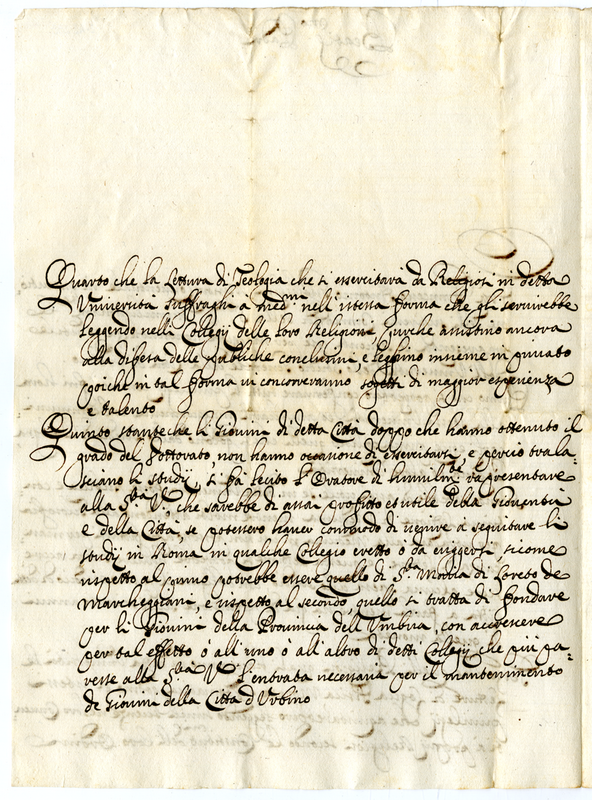 Quarto che la lettura di Teologia che si essercitarà da Religiosi in detta
Università suffraghi a med.mi nell'istessa forma che gli servirebbe
leggendo nelli Collegij delle loro Religioni, purche assistino ancora
alla difesa delle publiche conclusioni, e leghino insieme in privato
poiche in tal forma vi concorreranno sogetti di maggior esperienza
e talento
Quinto stante che li Giovini di detta Città doppo che hanno ottenuto il
grado del Dottorato, non hanno occasione di essercitarsi, e perciò trala-
sciano li studij, si fà lecito l'Oratore di humilm.te rapresentare
alla S.tà V., che sarebbe di assai profitto et utile della Gioventù
e della Città, se potessero haver commodo di venire a seguitare li
studij in Roma in qualche Collegio eretto ò da erigersi, sicome
rispetto al primo potrebbe essere quello di S.ta Maria di Loreto de
Marcheggiani, e rispetto al secondo quello si tratta di fondare
per li Giovini della Provincia dell'Umbria, con accrescere
per tal effetto ò all'uno ò all'altro di detti Collegij che più pa-
resse alla S.tà V.ra l'entrata necessaria per il mantenimento
de Giovini della Città d'Urbino